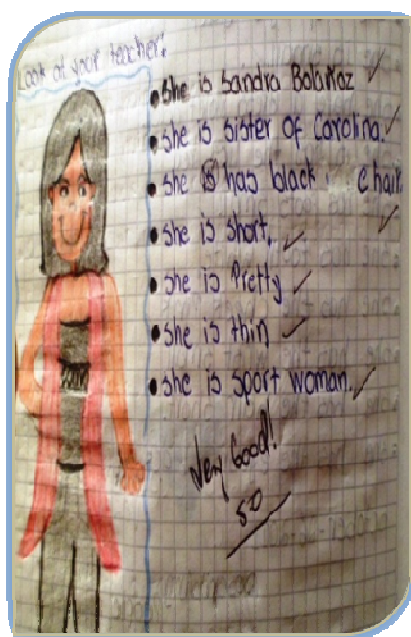 Look at your teacher!
• She is Sandra Bolaños
• She is sister of Carolina.
• She has black chair
• She is short.
• She is Pretty
• She is thin
• She is sport woman.
Very Good!
50